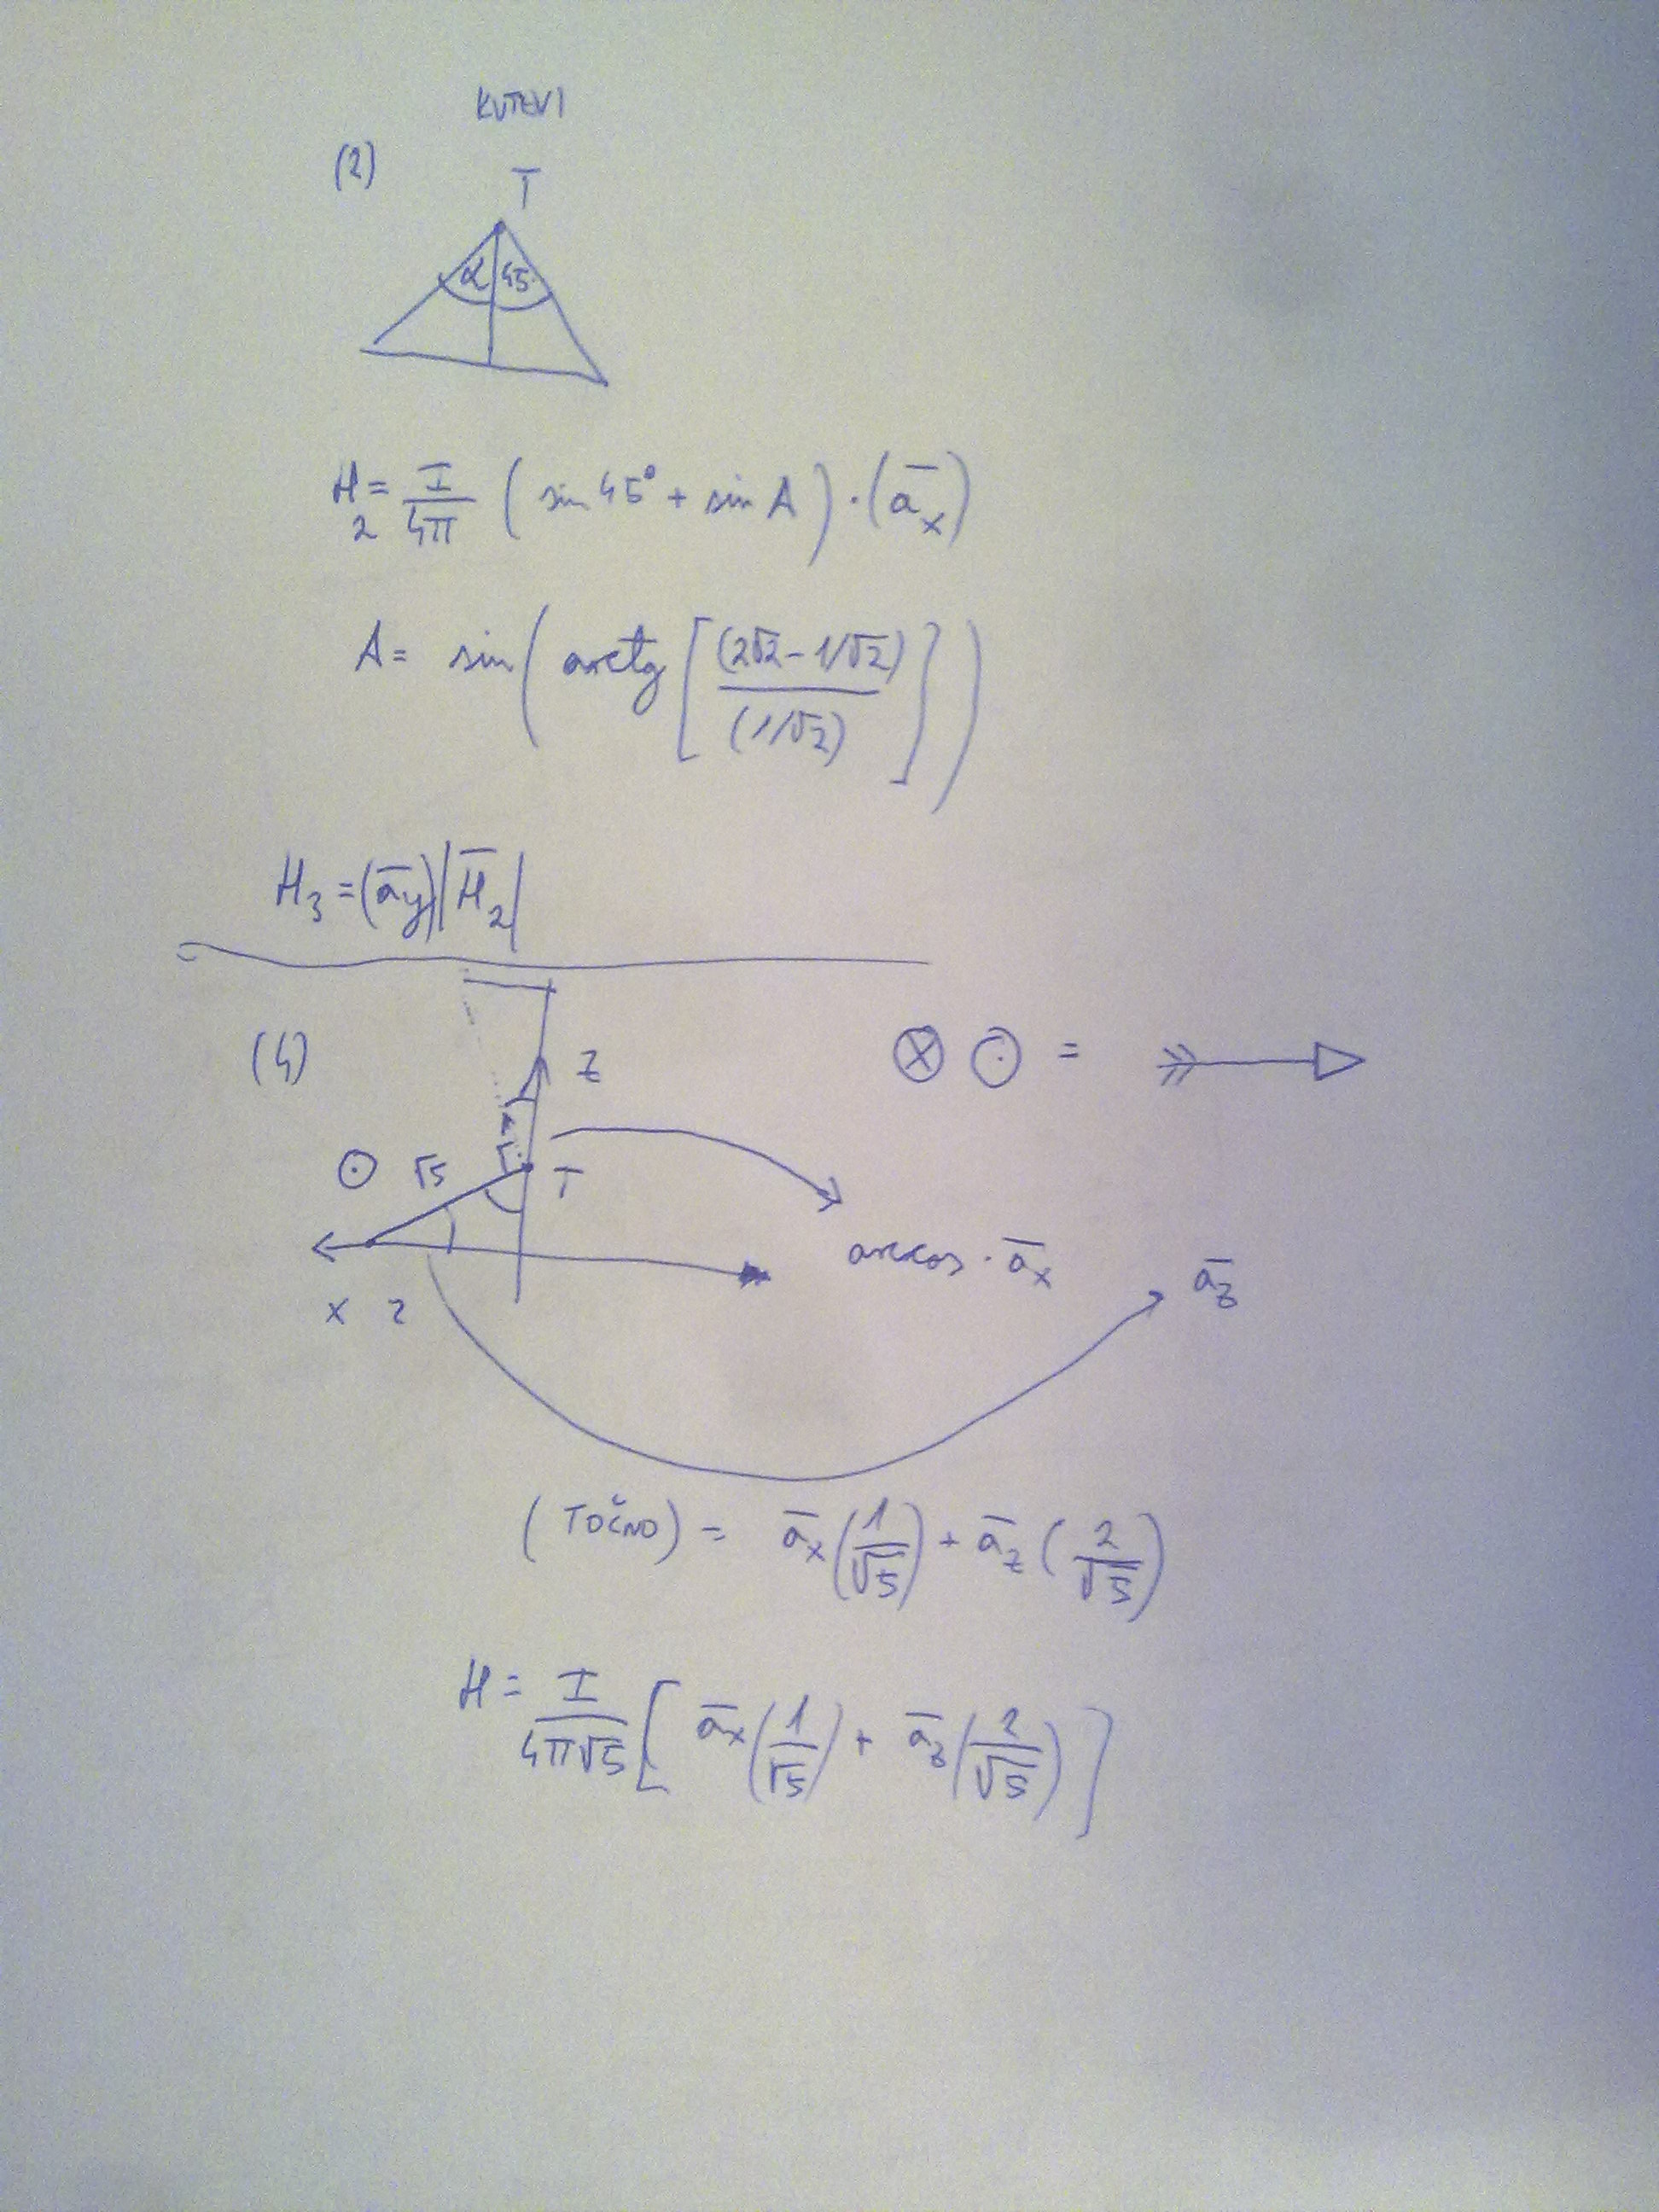 KUTEVI
(2)
T
α 45°
H₂ = I/4π (sin 45° + sin A) · (a̅ₓ)
A = sin(arctg[(2√2 - 1/√2)/(1/√2)])
H₃ = (a̅y)|H̅₂|
(4)
Z
⊗ ⊙ =
⊙ √5 T
arccos · a̅ₓ
a̅z
x 2
(TOČNO) = a̅ₓ(1/√5) + a̅z(2/√5)
H = I/4π√5 [a̅ₓ(1/√5) + a̅z(2/√5)]